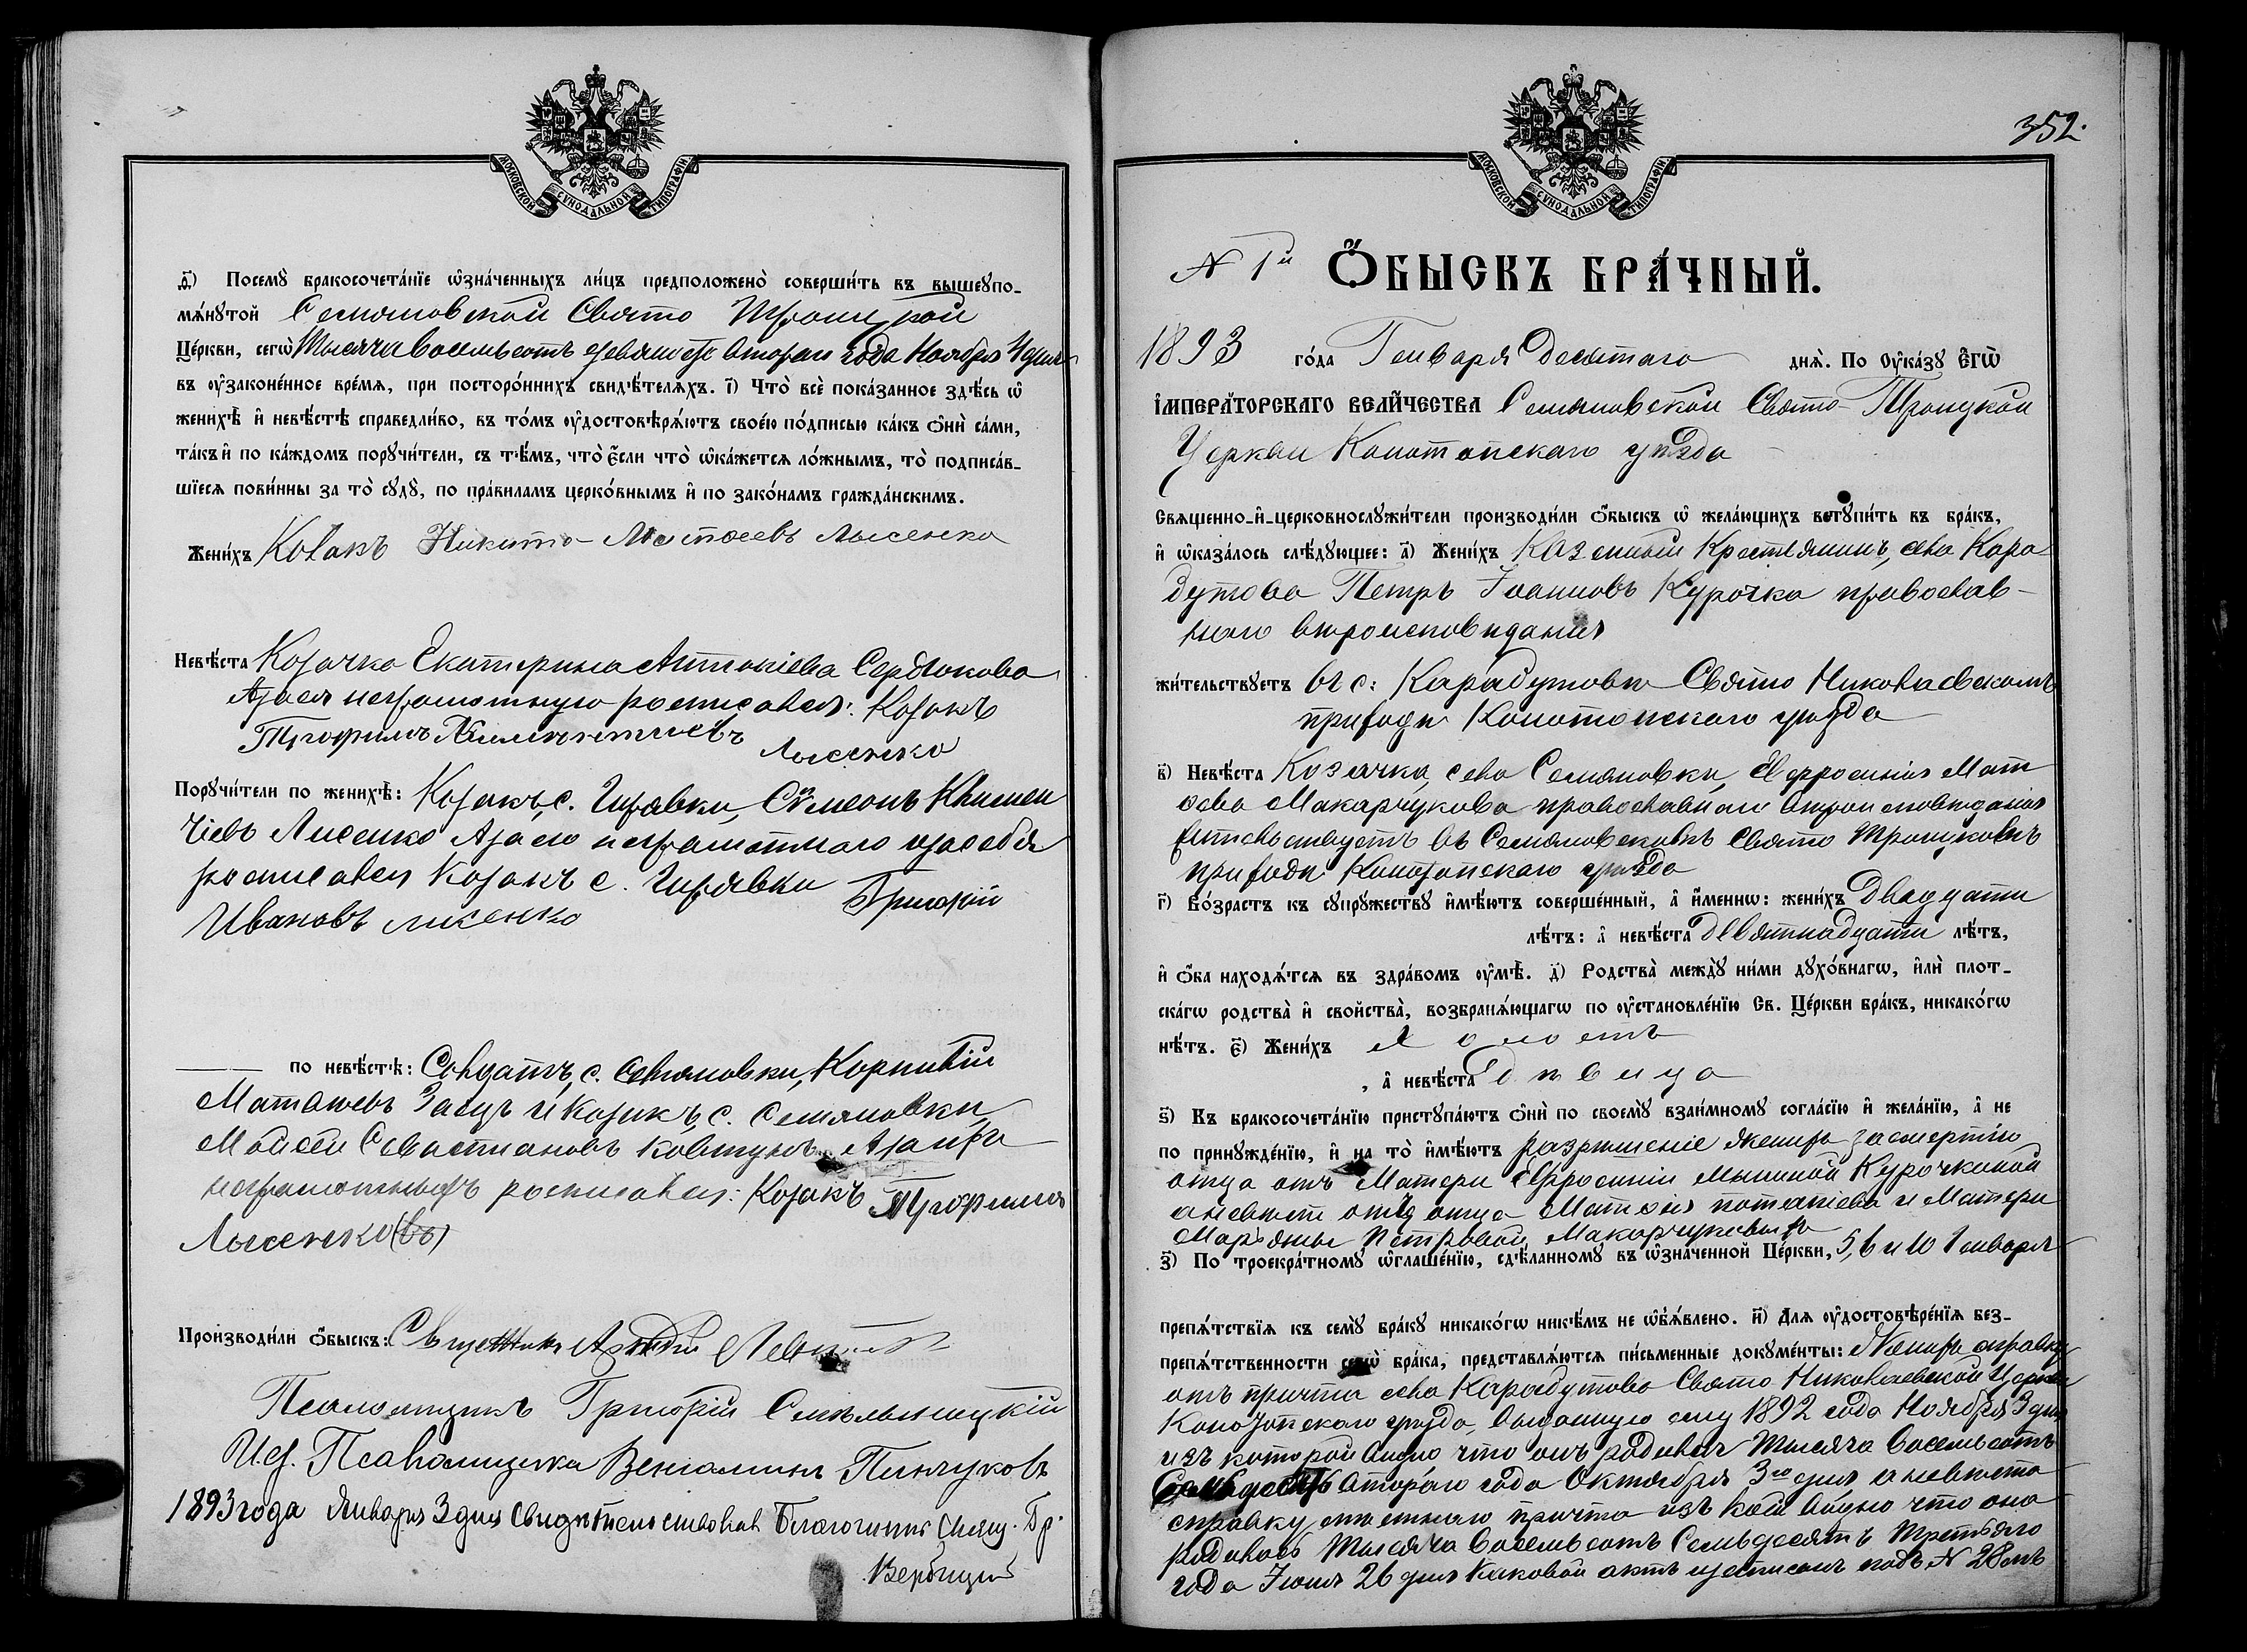 МОСКОВСКОЙ СѴНОДАЛЬНОЙ ТИПОГРАФІИ
д҃) Посемꙋ̀ бракосочета́нїе ѡ҆зна́ченныхъ ли́цъ предположено̀ соверши́ть въ вышеꙋпо-
мѧ́нꙋтой Семяновской Свято Троицкой
Це́ркви, сегѡ̀ Тысяча восемьсотъ девяносто втораго года Ноября 4 дня
въ ᲂу҆законе́нное вре́мѧ, при посторо́ннихъ свидѣ́телѧхъ. і҃) Что̀ всѐ пока́занное здѣ́сь ѡ҆
женихѣ̀ и҆ невѣ́стѣ справедли́во, въ то́мъ ᲂу҆достовѣрѧ́ютъ свое́ю по́дписью ка́къ ѻ҆нѝ са́ми,
та́къ и҆ по ка́ждомъ порꙋчи́тели, съ тѣ́мъ, что̀ є҆́сли что̀ ѡ҆ка́жетсѧ ло́жнымъ, то̀ подписа́в-
шїесѧ пови́нны за то̀ сꙋдꙋ̀, по пра́виламъ церко́внымъ и҆ по зако́намъ гражда́нскимъ.
Жени́хъ Козакъ Никита Матвеевъ Лысенко
Невѣ́ста Козачка Екатерина Антониева Сердюкова
А за ея неграмотную росписался: Козакъ
Трофимъ Климентиевъ
Лысенко
Порꙋчи́тели по женихѣ̀: Козакъ, с. Гирявки, Сѵмеонъ Климен
тіевъ Лисенко А за его неграмотнаго и за себя
росписался Козакъ с. Гирявки Григорій
Ивановъ Лисенко
по невѣ́стѣ: Солдатъ, с. Семяновки, Корнилій
Матвѣевъ Заецъ и Козакъ, с. Семяновки
Мойсей Севастиановъ Ковтунъ А за ихъ
неграмотныхъ росписался: Козакъ Трофимъ
Лысенко(въ)
Производи́ли ѻ҆́быскъ: Священникъ
Псаломщикъ Григорій
И.д. Псаломщика Веніаминъ Пинчуковъ
1893 года Января 3 дня Свидѣтельствовалъ Благочинный Свящ. Гр.
Вербицкій
352.
МОСКОВСКОЙ СѴНОДАЛЬНОЙ ТИПОГРАФІИ
N 1й Ѻ҆́БЫСКЪ БРА́ЧНЫЙ.
1893 го́да Генваря Десятаго днѧ̀. По Оу҆ка́зꙋ Є҆гѡ̀
І҆мпера́торскаго Вели́чества Семяновской Свято-Троицкой
Церкви Конотопскаго уѣзда
Свѧщенно-и҆-церковнослꙋжи́тели производи́ли ѻ҆́быскъ ѡ҆ жела́ющихъ встꙋпи́ть въ бра́къ,
и҆ ѡ҆каза́лось слѣ́дꙋющее: а҃) Жени́хъ Казенный Крестьянинъ, села Кара-
бутова Петръ Іоанновъ Курочка православ-
наго вѣроисповѣданія
жи́тельствꙋетъ въ с: Карабутовѣ Свято Николаевскомъ
приходѣ Конотопскаго уѣзда
в҃) Невѣ́ста Козачка, села Семяновки, Евфросинія Мат
ѳева Макарчукова православнаго вѣроисповѣданія
жительствуетъ въ Семяновскомъ Свято Троицкомъ
приходѣ Конотопскаго уѣзда
г҃) Во́зрастъ къ сꙋпрꙋжествꙋ и҆мѣ́ютъ соверше́нный, а҆ и҆́меннѡ: жени́хъ Двадцати
лѣ́тъ: а҆ невѣ́ста Девятнадцати лѣ́тъ,
и҆ ѻ҆́ба нахо́дѧтсѧ въ здра́вомъ ᲂу҆мѣ̀. д҃) Родства̀ междꙋ̀ ни́ми дꙋхо́внагѡ, и҆лѝ плот-
ска́гѡ родства̀ и҆ свойства̀, возбранѧ́ющагѡ по ᲂу҆становле́нїю Св. Це́ркви бра́къ, никако́гѡ
нѣ́тъ. є҃) Жени́хъ Холостъ
, а҆ невѣ́ста дѣвица
ѕ҃) Къ бракосочета́нїю пристꙋпа́ютъ ѻ҆нѝ по своемꙋ̀ взаи́мномꙋ согла́сїю и҆ жела́нїю, а҆ не
по принꙋжде́нїю, и҆ на то̀ и҆мѣ́ютъ разрѣшеніе женихъ за смертію
отца отъ Матери Евфросиніи Мининой Курочкиной
а невѣста отъ отца Матѳія Потапіева и Матери
Марьяны Петровой Макарчуковыхъ
з҃) По троекра́тномꙋ ѡ҆глаше́нїю, сдѣ́ланномꙋ въ ѡ҆зна́ченной Це́ркви, 5, 6 и 10 Генваря
препѧ́тствїѧ къ семꙋ̀ бра́кꙋ никако́гѡ никѣ́мъ не ѡ҆б̾ѧ́влено. и҃) Длѧ ᲂу҆достовѣре́нїѧ без-
препѧ́тственности сегѡ̀ бра́ка, представлѧ́ютсѧ пи́сьменные докꙋме́нты: Женихъ справку
отъ причта села Карабутова Свято Николаевской Церкви
Конотопскаго уѣзда, выданную ему 1892 года Ноября 3 дня
изъ которой видно что онъ родился Тысяча восемьсотъ
Семьдесятъ втораго года Октября 3го дня, а невѣста
справку отъ причта изъ коей видно что она
родилась Тысяча восемьсотъ Семьдесятъ третьяго
года Іюня 26 дня каковой актъ записанъ подъ N 28мъ